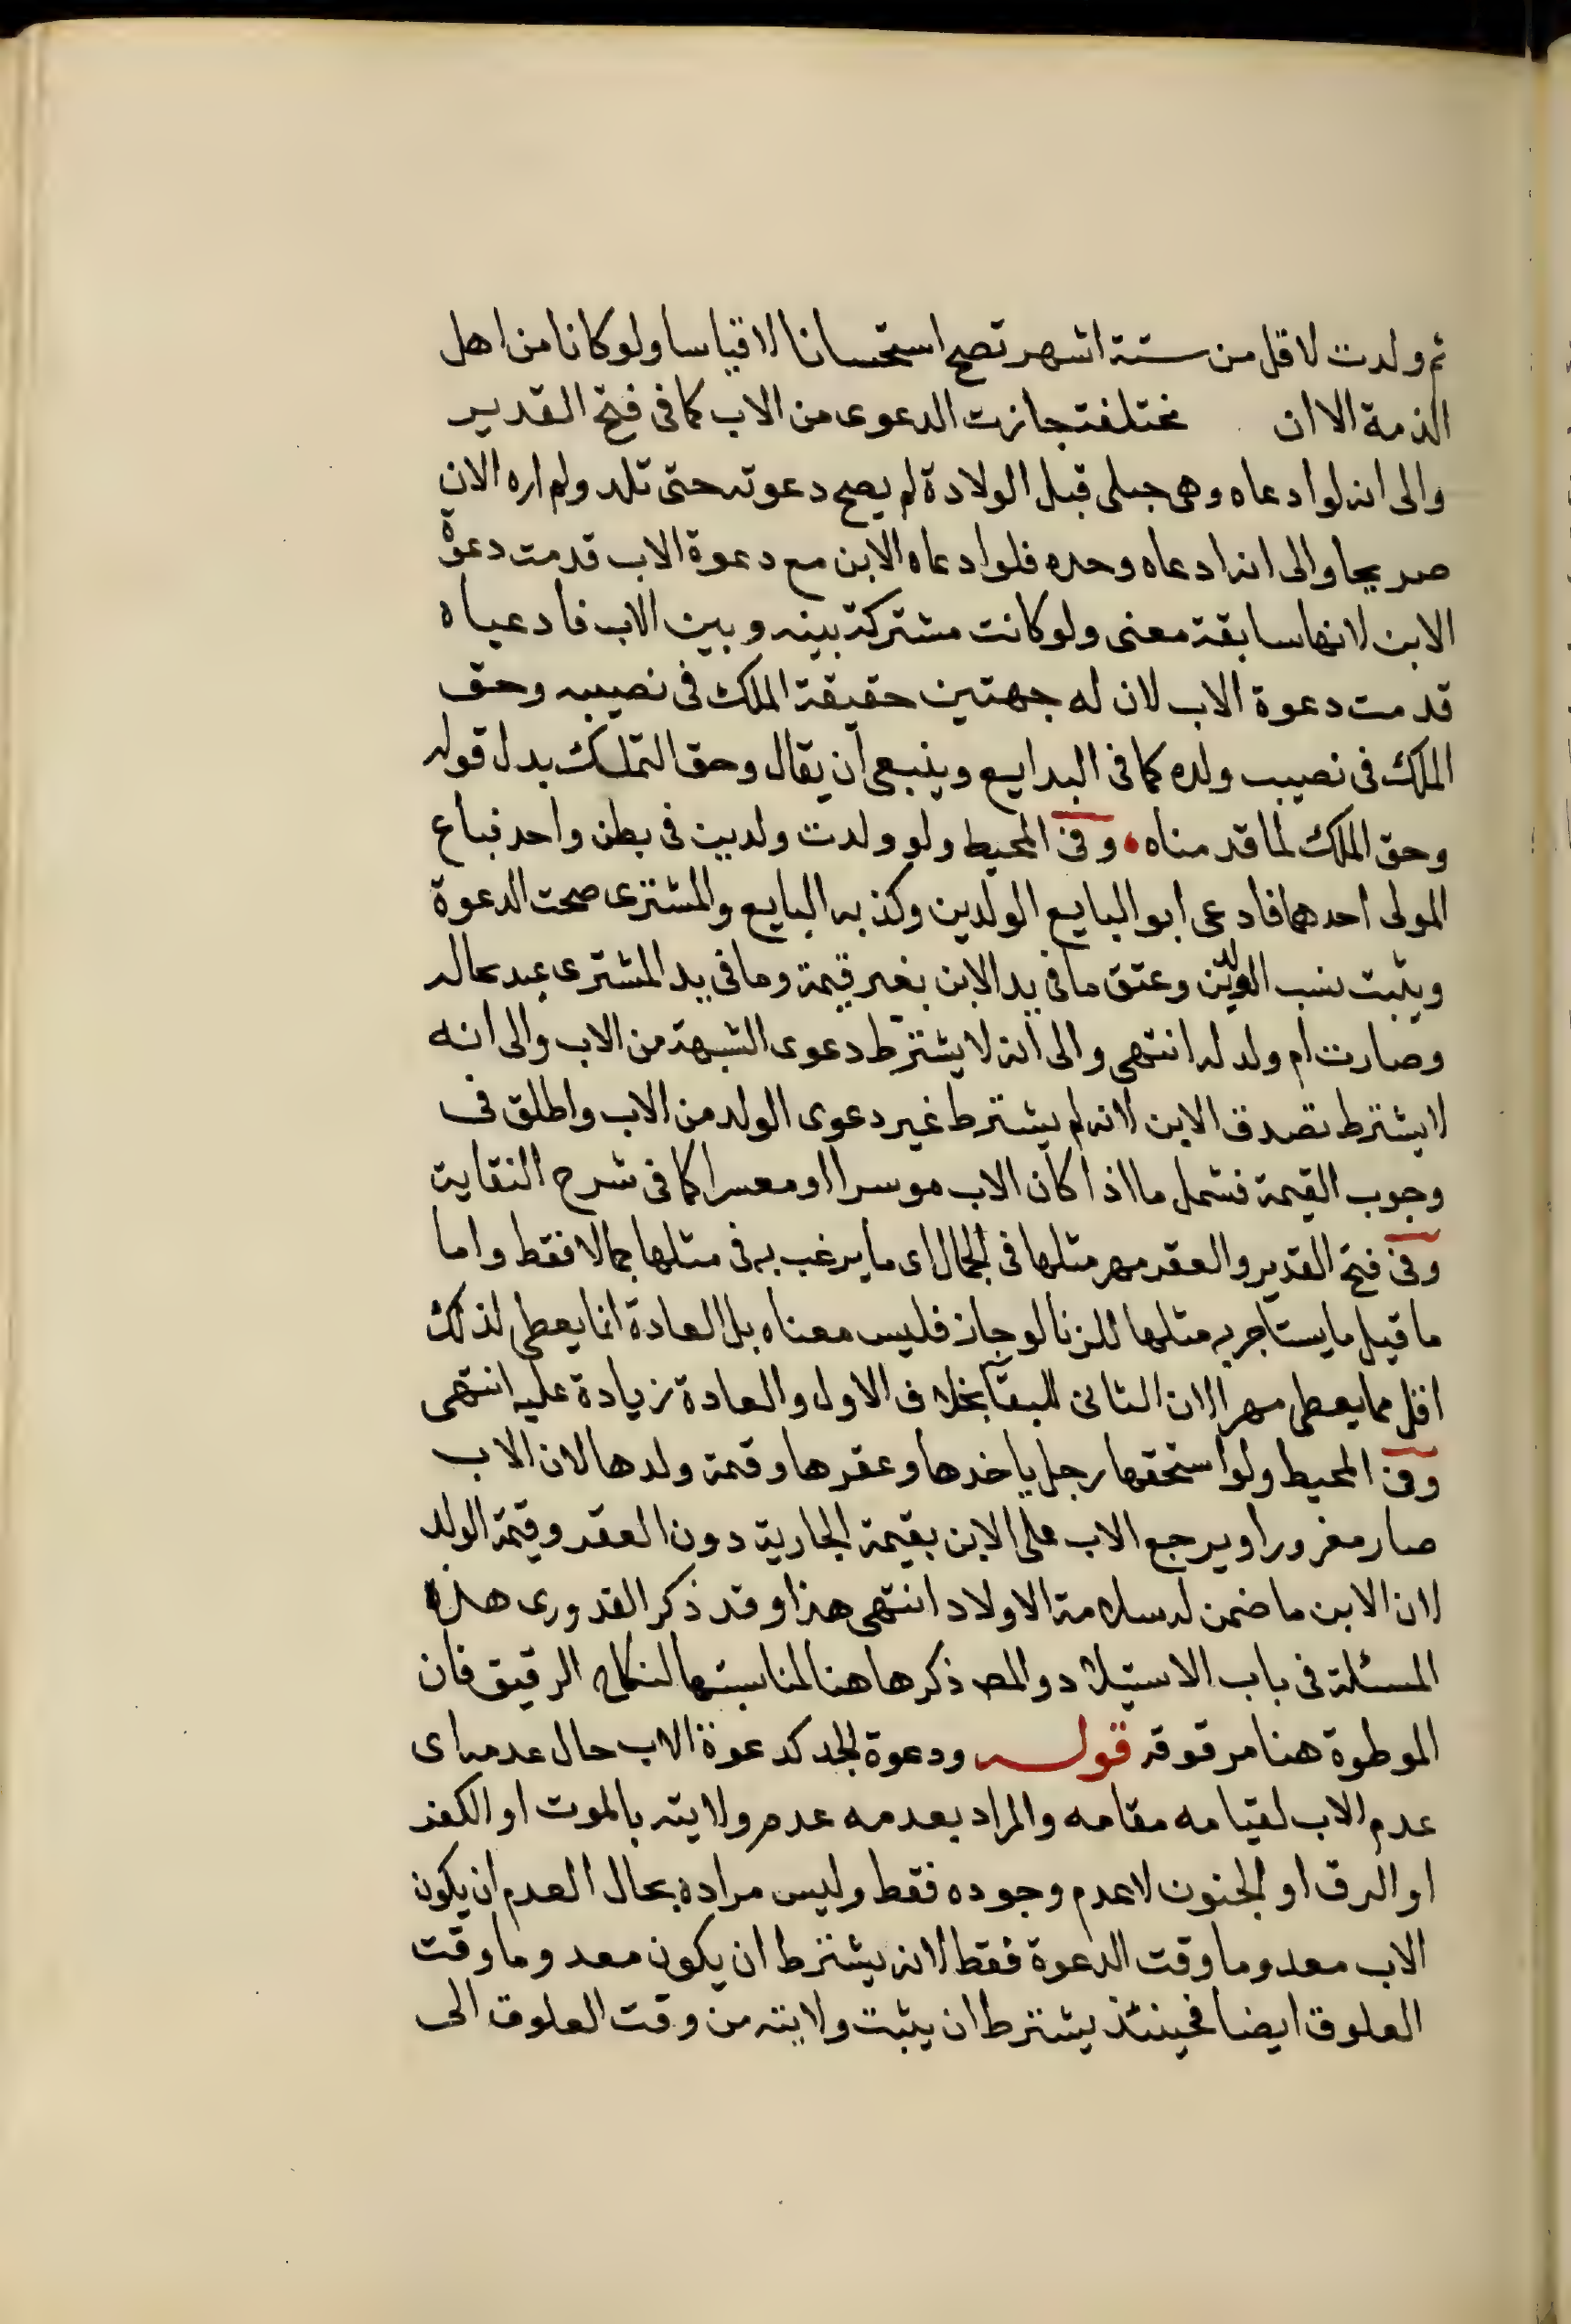 ثم ولدت لاقل من ستة اشهر تصح استحسانا لا قياسا ولو كانا من اهل
الذمة الا ان مختلفة جازت الدعوى من الاب كما فى فتح القدير
والى انه لو ادعاه وهى حبلى قبل الولادة لم يصح دعوته حتى تلد ولم اره الان
صريحا والى انه ادعاه وحده فلو ادعاه الابن مع دعوة الاب قدمت دعوة
الابن لانها سابقة معنى ولو كانت مشتركة بينه وبين الاب فادعياه
قدمت دعوة الاب لان له جهتين حقيقة الملك فى نصيبه وحق
الملك فى نصيب ولده كما فى البدايع وينبغى ان يقال وحق التملك بدل قوله
وحق الملك لما قدمناه وفى المحيط ولو ولدت ولدين فى بطن واحد فباع
المولى احدهما فادعى ابو البايع الولدين وكذبه البايع والمشترى صحت الدعوة
ويثبت نسب الولدين وعتق ما فى يد الابن بغير قيمة وما فى يد المشترى عبد بحاله
وصارت ام ولد له انتهى والى انه لا يشترط دعوى الشبهة من الاب والى انه
لا يشترط تصدق الابن لانه لم يشترط غير دعوى الولد من الاب واطلق فى
وجوب القيمة فشمل ما اذا كان الاب موسرا او معسرا كما فى شرح النقاية
وفى فتح القدير والعقر مهر مثلها فى الجمال اى ما يرغب به فى مثلها جمالا فقط واما
ما قيل ما يستاجر به مثلها للزنا لو جاز فليس معناه بل العادة انما يعطى لذلك
اقل مما يعطى مهرا لان الثانى للبقآ بخلاف الاول والعادة زيادة عليه انتهى
وفى المحيط ولو استحقها رجل ياخدها وعقرها وقيمة ولدها لان الاب
صار مغرورا ويرجع الاب على الابن بقيمة الجارية دون العقر وقيمة الولد
لان الابن ما ضمن له سلامة الاولاد انتهى هذا وقد ذكر القدورى هذه
المسئلة فى باب الاستيلاد والمص ذكرها هنا لمناسبتها لنكاح الرقيق فان
الموطوة هنا مرقوقة قوله ودعوة الجد كدعوة الاب حال عدمه اى
عدم الاب لقيامه مقامه والمراد بعدمه عدم ولايته بالموت او الكفر
او الرق او الجنون لا عدم وجوده فقط وليس مراده بحال العدم ان يكون
الاب معدوما وقت الدعوة فقط لانه يشترط ان يكون معدوما وقت
العلوق ايضا فحينئذ يشترط ان يثبت ولايته من وقت العلوق الى